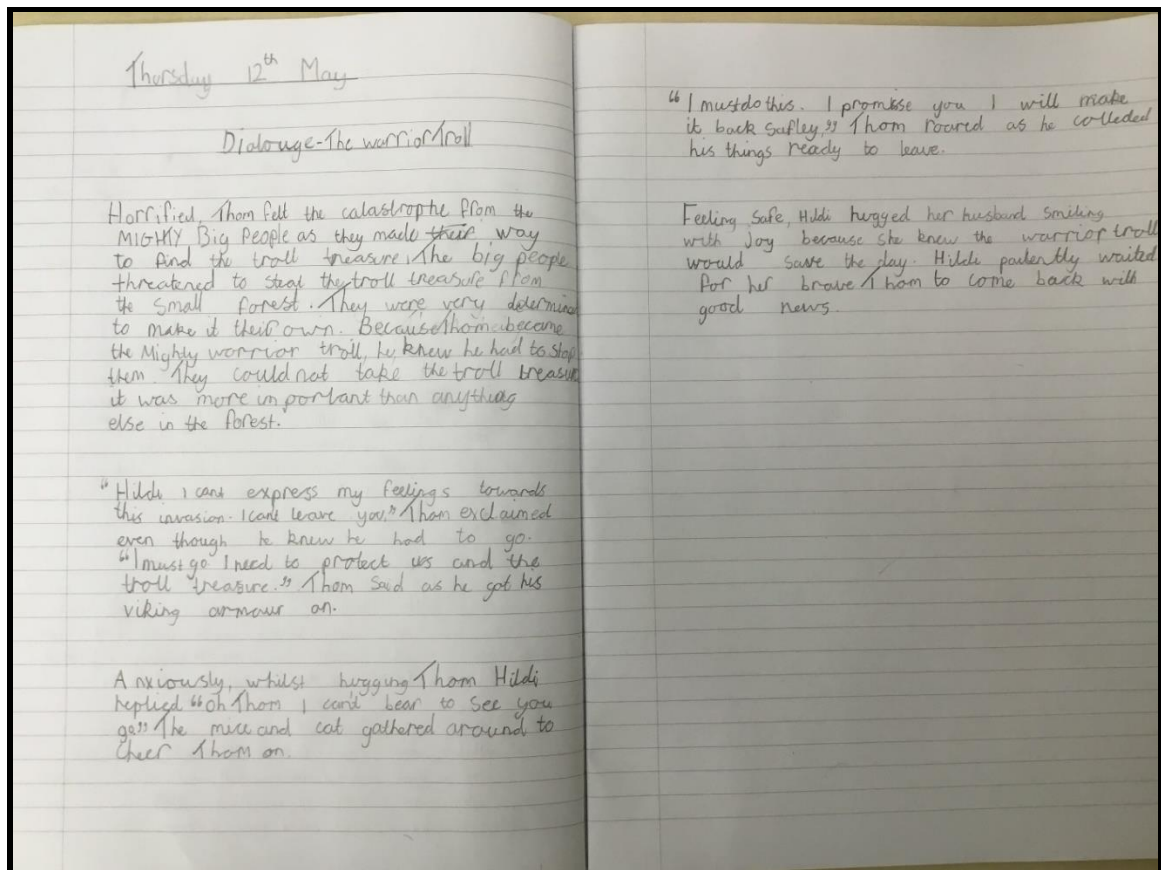 Thursday 12th May
Dialouge-The warrior Troll
Horrified, Thom felt the catastrophe from the
MIGHTY Big People as they made their way
to find the troll treasure. The big people
threatened to steal the troll treasure from
the small forest. They were very determined
to make it their own. Because Thom became
the Mighty worrior troll, he knew he had to stop
them. They could not take the troll treasure
it was more important than anything
else in the forest.
"Hildi I cant express my feelings towards
this invasion. I cant leave you." Thom exclaimed
even though he knew he had to go.
"I must go I need to protect us and the
troll treasure." Thom said as he got his
viking armour on.
Anxiously, whilst hugging Thom Hildi
replied "oh Thom I can't bear to see you
go" The mice and cat gathered around to
cheer Thom on.
"I must do this. I promisse you I will make
it back safley," Thom roared as he collected
his things ready to leave.
Feeling safe, Hildi hugged her husband smiling
with joy because she knew the warrior troll
would save the day. Hildi patently waited
for her brave Thom to come back with
good news.